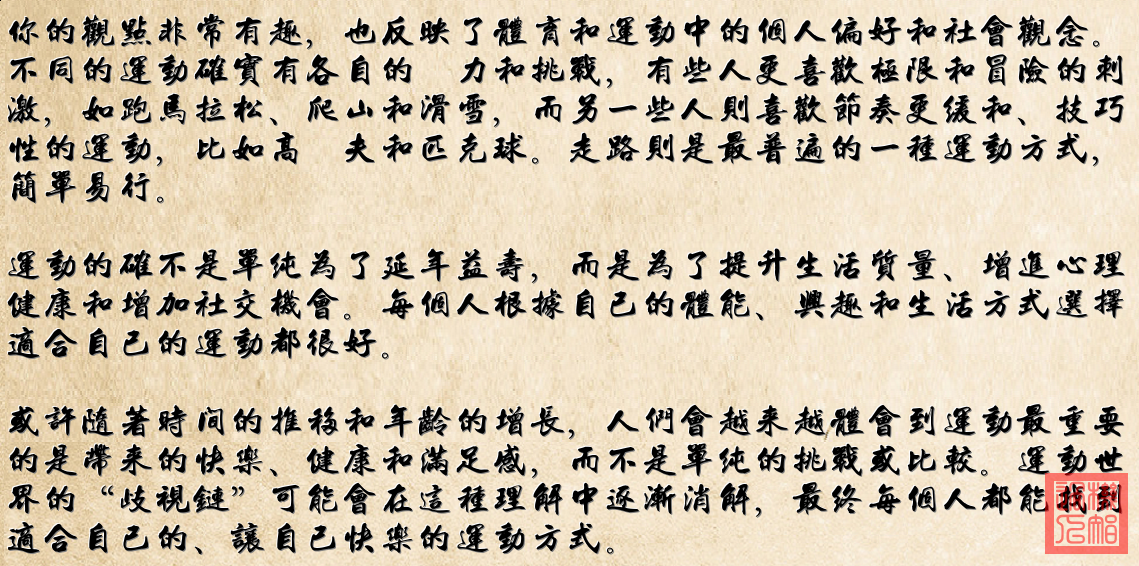 你的觀點非常有趣，也反映了體育和運動中的個人偏好和社會觀念。
不同的運動確實有各自的　力和挑戰，有些人更喜歡極限和冒險的刺
激，如跑馬拉松、爬山和滑雪，而另一些人則喜歡節奏更緩和、技巧
性的運動，比如高　夫和匹克球。走路則是最普遍的一種運動方式，
簡單易行。
運動的確不是單純為了延年益壽，而是為了提升生活質量、增進心理
健康和增加社交機會。每個人根據自己的體能、興趣和生活方式選擇
適合自己的運動都很好。
或許隨著時间的推移和年齡的增長，人們會越来越體會到運動最重要
的是帶来的快樂、健康和滿足感，而不是單純的挑戰或比較。運動世
界的“歧視鏈”可能會在這種理解中逐漸消解，最终每個人都能找到
適合自己的、讓自己快樂的運動方式。